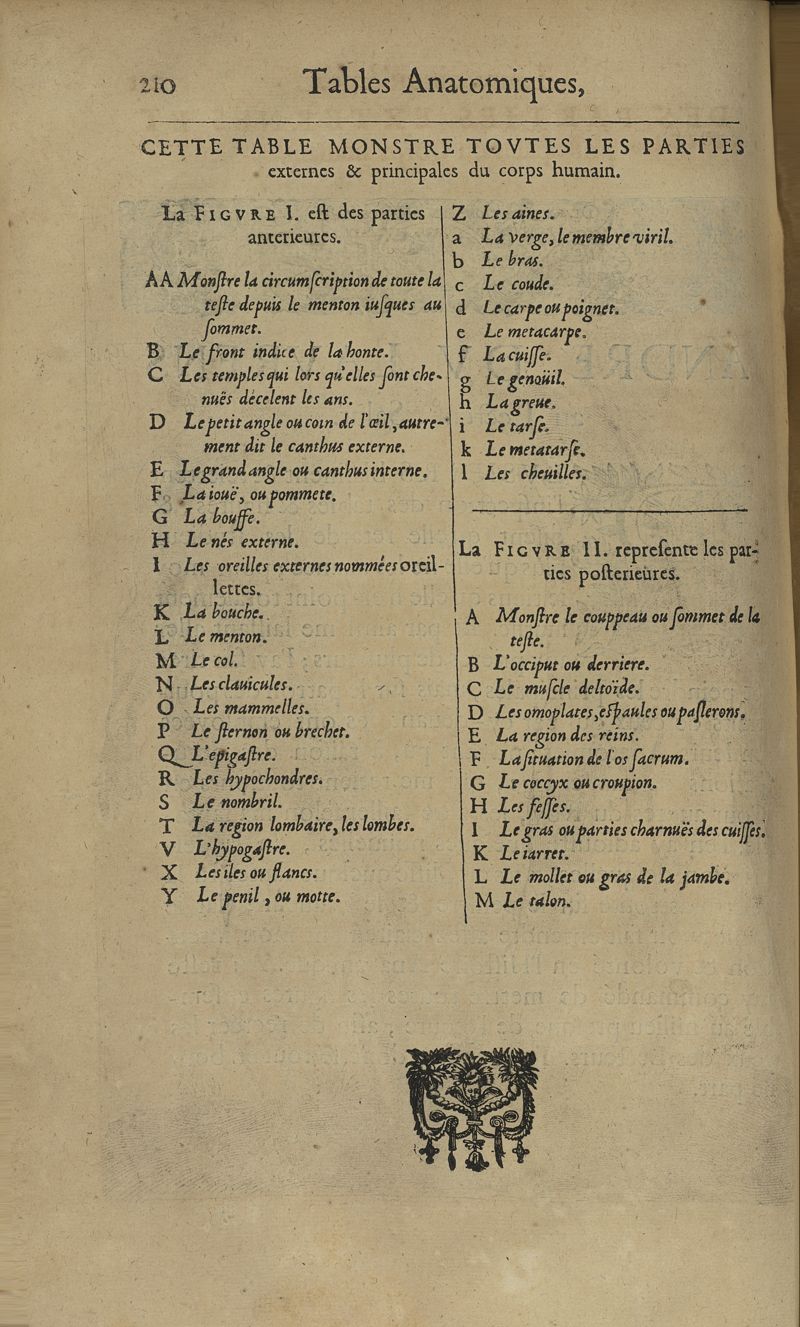 210 Tables Anatomiques,
CETTE TABLE MONSTRE TOVTES LES PARTIES
externes & principales du corps humain.
La FIGVRE I. eſt des parties
anterieures.
AA Monſtre la circumſcription de toute la
teſte depuis le menton iuſques au
ſommet.
B Le front indice de la honte.
C Les temples qui lors qu'elles ſont che-
nuës décelent les ans.
D Le petit angle ou coin de l'œil, autre-
ment dit le canthus externe.
E Le grand angle ou canthus interne.
F La iouë, ou pommete.
G La bouffe.
H Le nés externe.
I Les oreilles externes nommées oreil-
lettes.
K La bouche.
L Le menton.
M Le col.
N Les clauicules.
O Les mammelles.
P Le ſternon ou brechet.
Q L'epigaſtre.
R Les hypochondres.
S Le nombril.
T La region lombaire, les lombes.
V L'hypogaſtre.
X Les iles ou flancs.
Y Le penil, ou motte.
Z Les aines.
a La verge, le membre viril.
b Le bras.
c Le coude.
d Le carpe ou poignet.
e Le metacarpe.
f La cuiſſe.
g Le genoüil.
h La greue.
i Le tarſe.
k Le metatarſe.
l Les cheuilles.
La FIGVRE II. repreſente les par-
ties poſterieures.
A Monſtre le couppeau ou ſommet de la
teſte.
B L'occiput ou derriere.
C Le muſcle deltoïde.
D Les omoplates, eſpaules ou paſlerons.
E La region des reins.
F La ſituation de l'os ſacrum.
G Le coccyx ou croupion.
H Les feſſes.
I Le gras ou parties charnuës des cuiſſes.
K Le iarret.
L Le mollet ou gras de la jambe.
M Le talon.